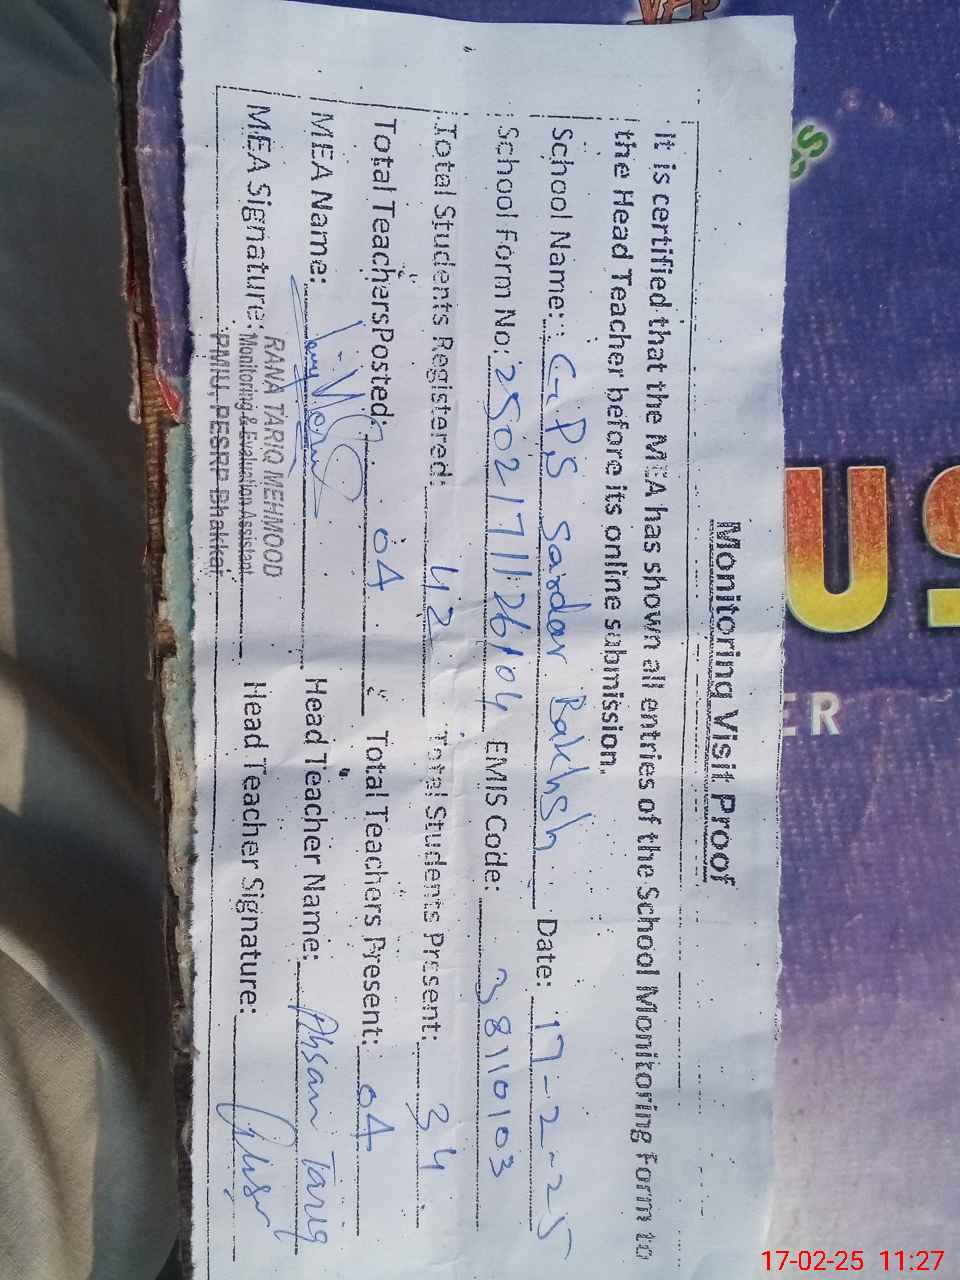 Monitoring Visit Proof
It is certified that the MEA has shown all entries of the School Monitoring Form to
the Head Teacher before its online submission.
School Name: G.P.S Sardar Bakhsh Date: 17-2-25
School Form No: 2502171126104 EMIS Code: 38110103
Total Students Registered: 42 Total Students Present: 34
Total Teachers Posted: 04 Total Teachers Present: 04
MEA Name: Head Teacher Name: Ahsan Tariq
MEA Signature: Head Teacher Signature:
RANA TARIQ MEHMOOD
Monitoring & Evaluation Assistant
PMIU, PESRP Bhakkar
US
ER
17-02-25 11:27